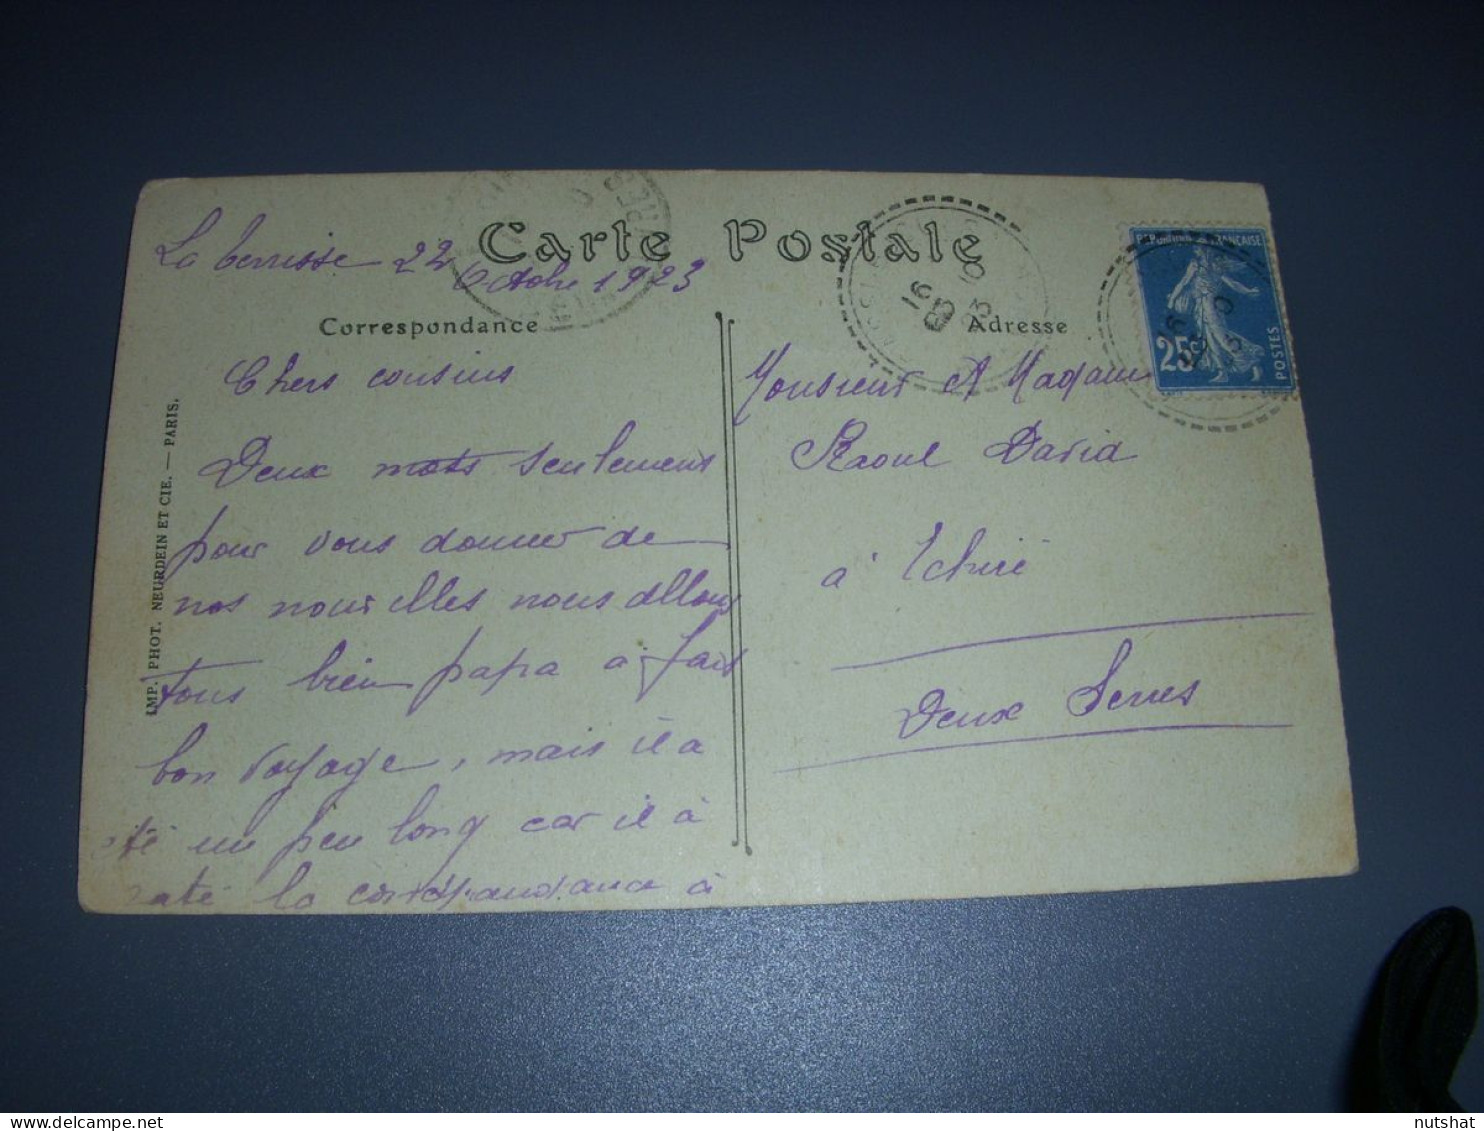 Carte Postale
La 22
Octobre 1923
Correspondance
Adresse
Chers cousins
Deux mots seulement
pour vous donner de
nos nouvelles nous allons
tous bien papa a fait
bon voyage, mais il a
été un peu long car il à
raté la correspondance à
Monsieur et Madame
Raoul David
à Echiré
Deux Sevres
IMP. PHOT. NEURDEIN ET CIE. — PARIS.
REPUBLIQUE FRANÇAISE
25c
POSTES
16
10
23
nutshat